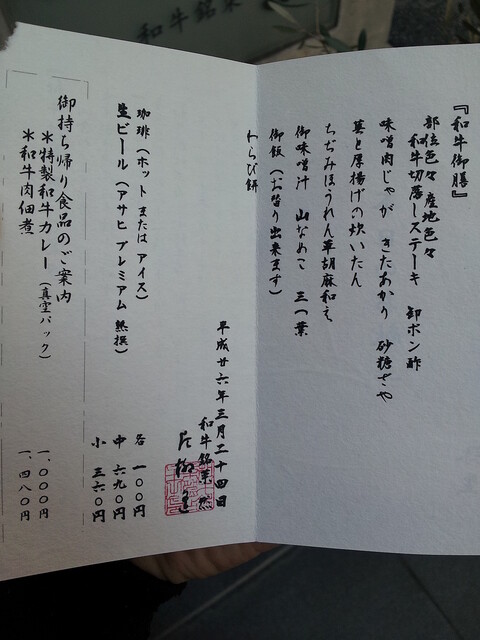 『和牛御膳』
部位色々 産地色々
和牛切落しステーキ 卸ポン酢
味噌肉じゃが きたあかり 砂糖さや
蕗と厚揚げの炊いたん
ちぢみほうれん草胡麻和え
御味噌汁 山なめこ 三つ葉
御飯（お替り出来ます）
わらび餅
平成廿六年三月二十四日
和牛銘菜 然
珈琲（ホット または アイス） 各 一〇〇円
生ビール（アサヒ プレミアム 熟撰） 中 六九〇円
小 三六〇円
御持ち帰り食品のご案内
＊特製和牛カレー（真空パック） 一、〇〇〇円
＊和牛肉佃煮 一、四八〇円
和牛銘菜